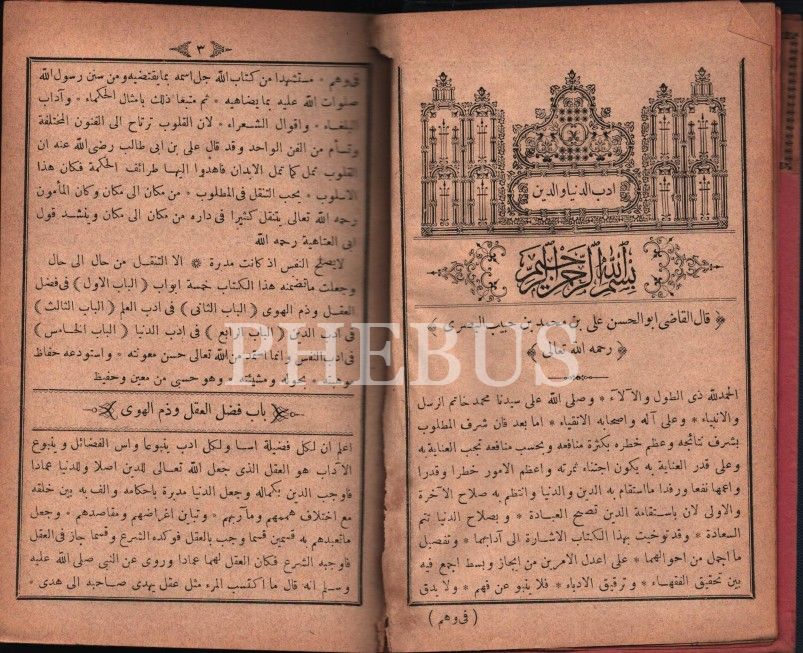 ادب الدنيا والدين
بسم الله الرحمن الرحيم
﴿ قال القاضى ابو الحسن على بن محمد بن حبيب البصرى ﴾
﴿ رحمه الله تعالى ﴾
الحمدلله ذى الطول والآلاء * وصلى الله على سيدنا محمد خاتم الرسل
والانبياء * وعلى آله واصحابه الاتقياء * اما بعد فان شرف المطلوب
بشرف نتائجه وعظم خطره بكثرة منافعه وبحسب منافعه تجب العناية به
وعلى قدر العناية به يكون اجتناء ثمرته واعظم الامور خطرا وقدرا
واعمها نفعا ورفدا ما استقام به الدين والدنيا وانتظم به صلاح الآخرة
والاولى لان باستقامة الدين تصح العبادة * وبصلاح الدنيا تتم
السعادة * وقد توخيت بهذا الكتاب الاشارة الى آدابهما * وتفصيل
ما اجمل من احوالهما * على اعدل الامرين من ايجاز وبسط اجمع فيه
بين تحقيق الفقهاء * وترقيق الادباء * فلا ينبو عن فهم * ولا يدق
( فى وهم )
٣
فى وهم * مستشهدا من كتاب الله جل اسمه بما يقتضيه ومن سنن رسول الله
صلوات الله عليه بما يضاهيه * ثم متبعا ذلك بامثال الحكماء * وآداب
البلغاء * واقوال الشعراء * لان القلوب ترتاح الى الفنون المختلفة
وتسأم من الفن الواحد وقد قال على بن ابى طالب رضى الله عنه ان
القلوب تمل كما تمل الابدان فاهدوا اليها طرائف الحكمة فكان هذا
الاسلوب * يحب التنقل فى المطلوب * من مكان الى مكان وكان المأمون
رحمه الله تعالى يتنقل كثيرا فى داره من مكان الى مكان وينشد قول
ابى العتاهية رحمه الله
لا يصلح النفس اذ كانت مدبرة * الا التنقل من حال الى حال
وجعلت ما تضمنه هذا الكتاب خمسة ابواب ( الباب الاول ) فى فضل
العقل وذم الهوى ( الباب الثانى ) فى ادب العلم ( الباب الثالث )
فى ادب الدين ( الباب الرابع ) فى ادب الدنيا ( الباب الخامس )
فى ادب النفس وانما استمد من الله تعالى حسن معونته * واستودعه حفاظ
موهبته * بحوله ومشيئته * وهو حسبى من معين وحفيظ
باب فضل العقل وذم الهوى
اعلم ان لكل فضيلة اسا ولكل ادب ينبوعا واس الفضائل وينبوع
الآداب هو العقل الذى جعل الله تعالى للدين اصلا وللدنيا عمادا
فاوجب الدين بكماله وجعل الدنيا مدبرة باحكامه والف به بين خلقه
مع اختلاف هممهم ومآربهم * وتباين اغراضهم ومقاصدهم * وجعل
ما تعبدهم به قسمين قسما وجب بالعقل فوكده الشرع وقسما جاز فى العقل
فاوجبه الشرع فكان العقل لهما عمادا وروى عن النبى صلى الله عليه
وسلم انه قال ما اكتسب المرء مثل عقل يهدى صاحبه الى هدى *
PHEBUS